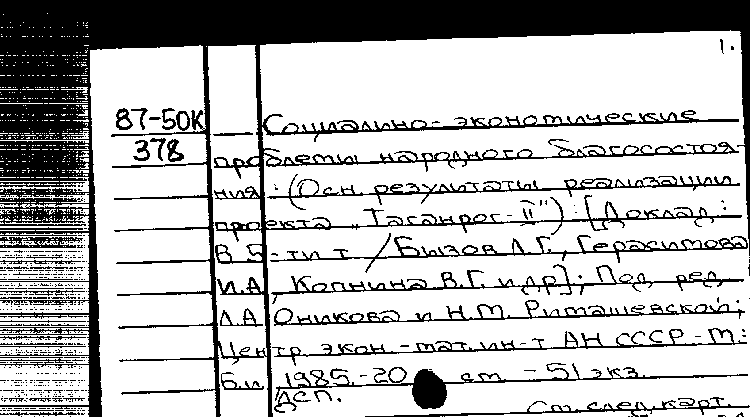 1.
87-50К Социально-экономические
378 проблемы народного благосостоя-
ния : (Осн. результаты реализации
проекта „Таганрог-II") : [Доклад :
В 5-ти т / Бызов Л.Г., Герасимова
И.А., Копнина В.Г. и др]; Под ред.
Л.А. Оникова и Н.М. Римашевской;
Центр. экон.-мат. ин-т АН СССР - М.:
Б.и., 1985.-20 см - 51 экз.
ДСП.
См. след. карт.